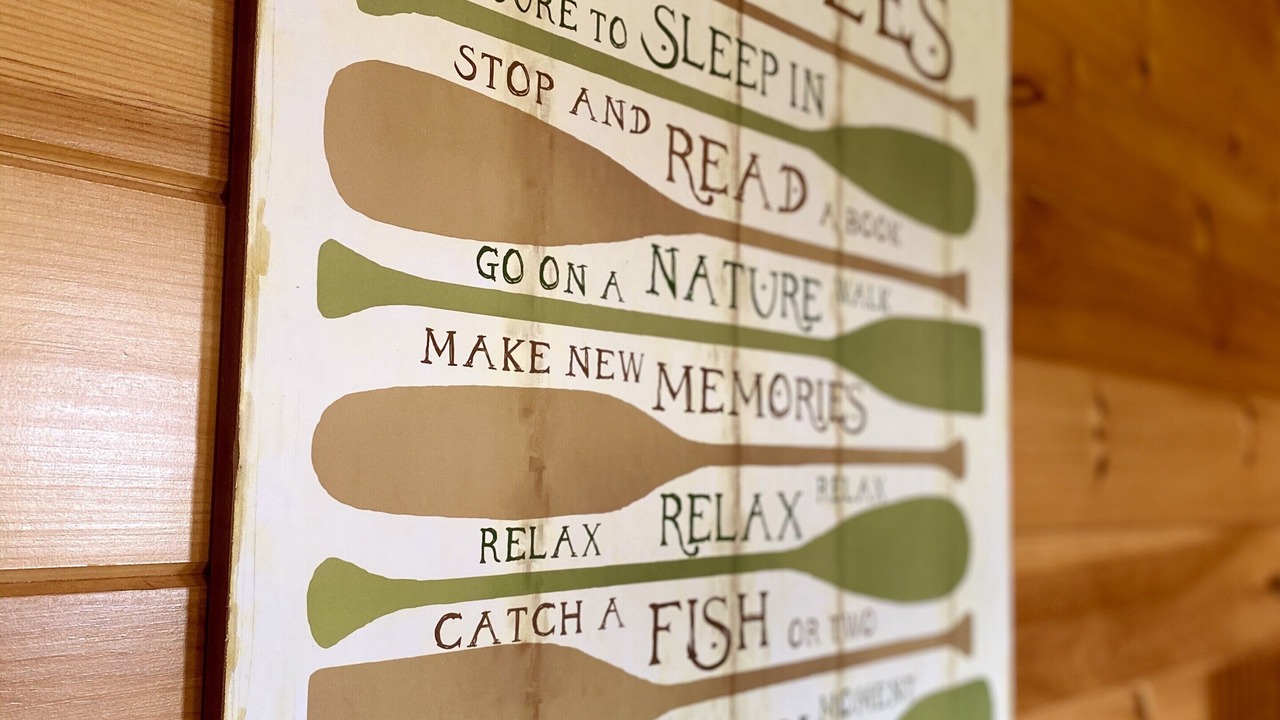 TO SLEEP IN
STOP AND READ A BOOK
GO ON A NATURE WALK
MAKE NEW MEMORIES
RELAX RELAX RELAX
CATCH A FISH OR TWO
MOMENT